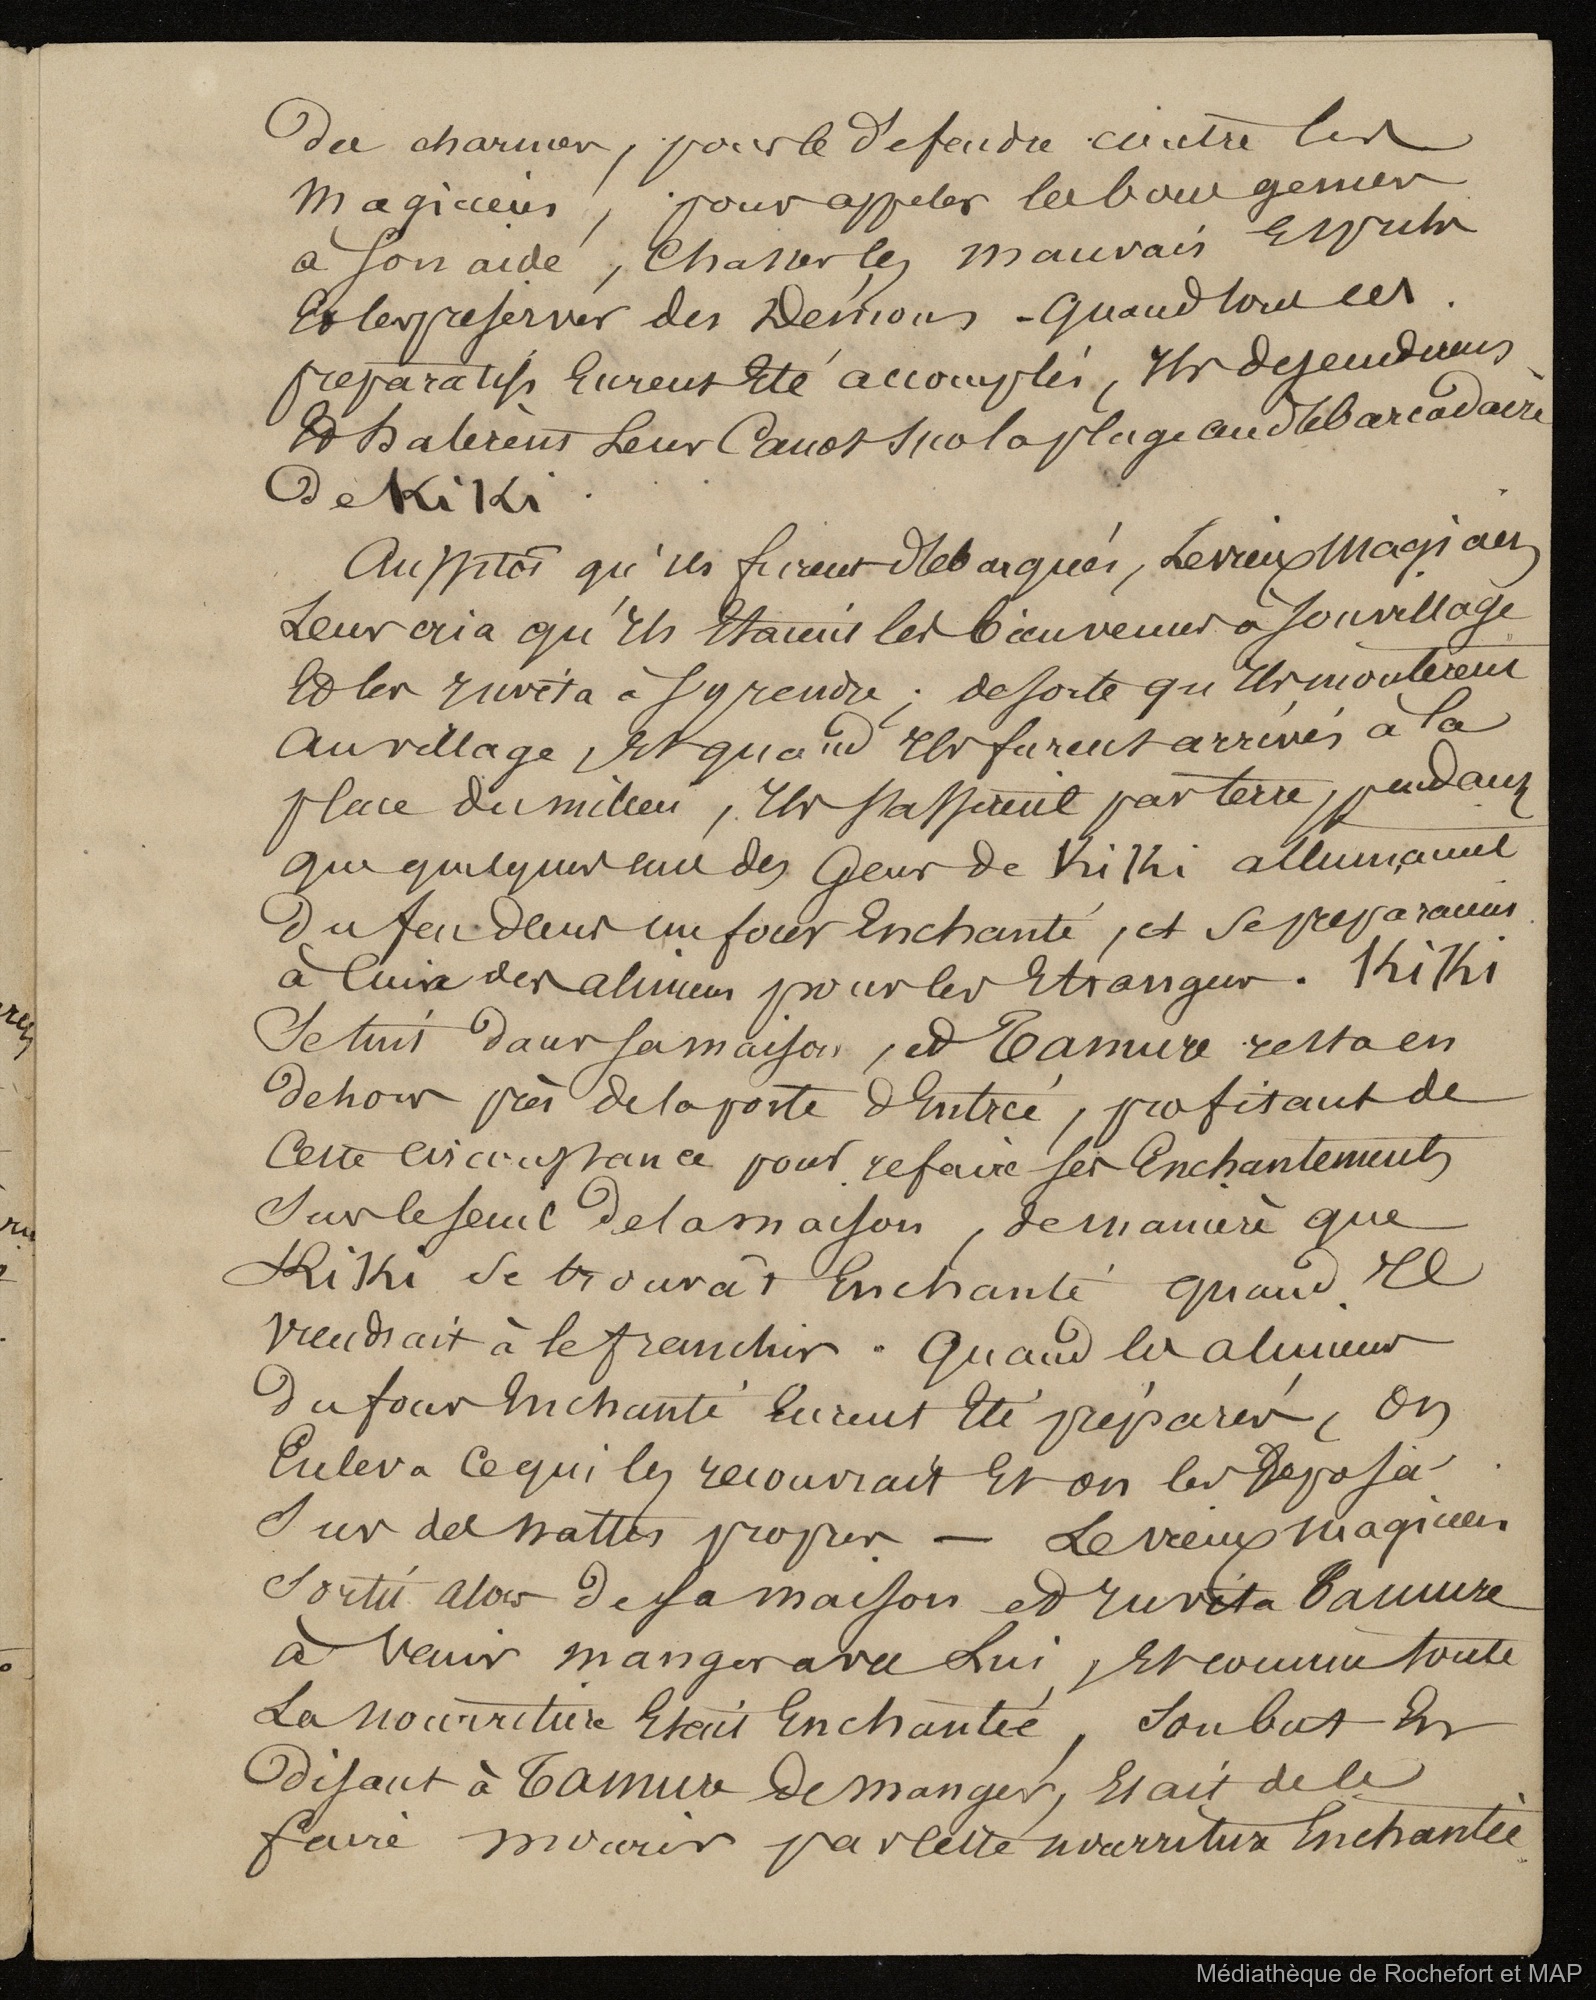 Des charmes, pour le défendre contre les
Magiciens, pour appeler les bons genies
à son aide, Chasser les mauvais Esprits
Et les preserver des Démons - Quand tous ces
preparatifs Eurent Eté accomplis, Ils descendirent
Et halèrent Leur Canot sur la plage au débarcadaire
De KiKi.
Aussitôt qu'ils furent débarqués, Le vieux Magicien
Leur cria qu'Ils Etaient les bienvenus à son village
Et les Invita à s'y rendre; de sorte qu'Ils montèrent
Au village, Et quand Ils furent arrivés à la
place du milieu, Ils s'assirent par terre, pendant
que quelques uns des Gens de KiKi allumaient
Du feu dans un four Enchanté, et se preparaient
à Cuire des alimens pour les Etrangers. KiKi
Se tint Dans sa maison, et Tamure resta en
Dehors près de la porte d'Entrée, profitant de
Cette circonstance pour refaire ses Enchantements
Sur le seuil De la maison, de manière que
KiKi se trouvât Enchanté quand Il
viendrait à le franchir. Quand les alimens
Du four Enchanté Eurent Eté préparés, On
Enleva Ce qui les recouvrait Et on les Deposa
Sur des nattes propres — Le vieux Magicien
Sortit alors De sa maison et Invita Tamure
à Venir manger avec Lui, Et comme toute
La nourriture Etait Enchantée, Son but En
Disant à Tamure De manger, Etait de le
faire mourir par cette nourriture Enchantée
Médiathèque de Rochefort et MAP